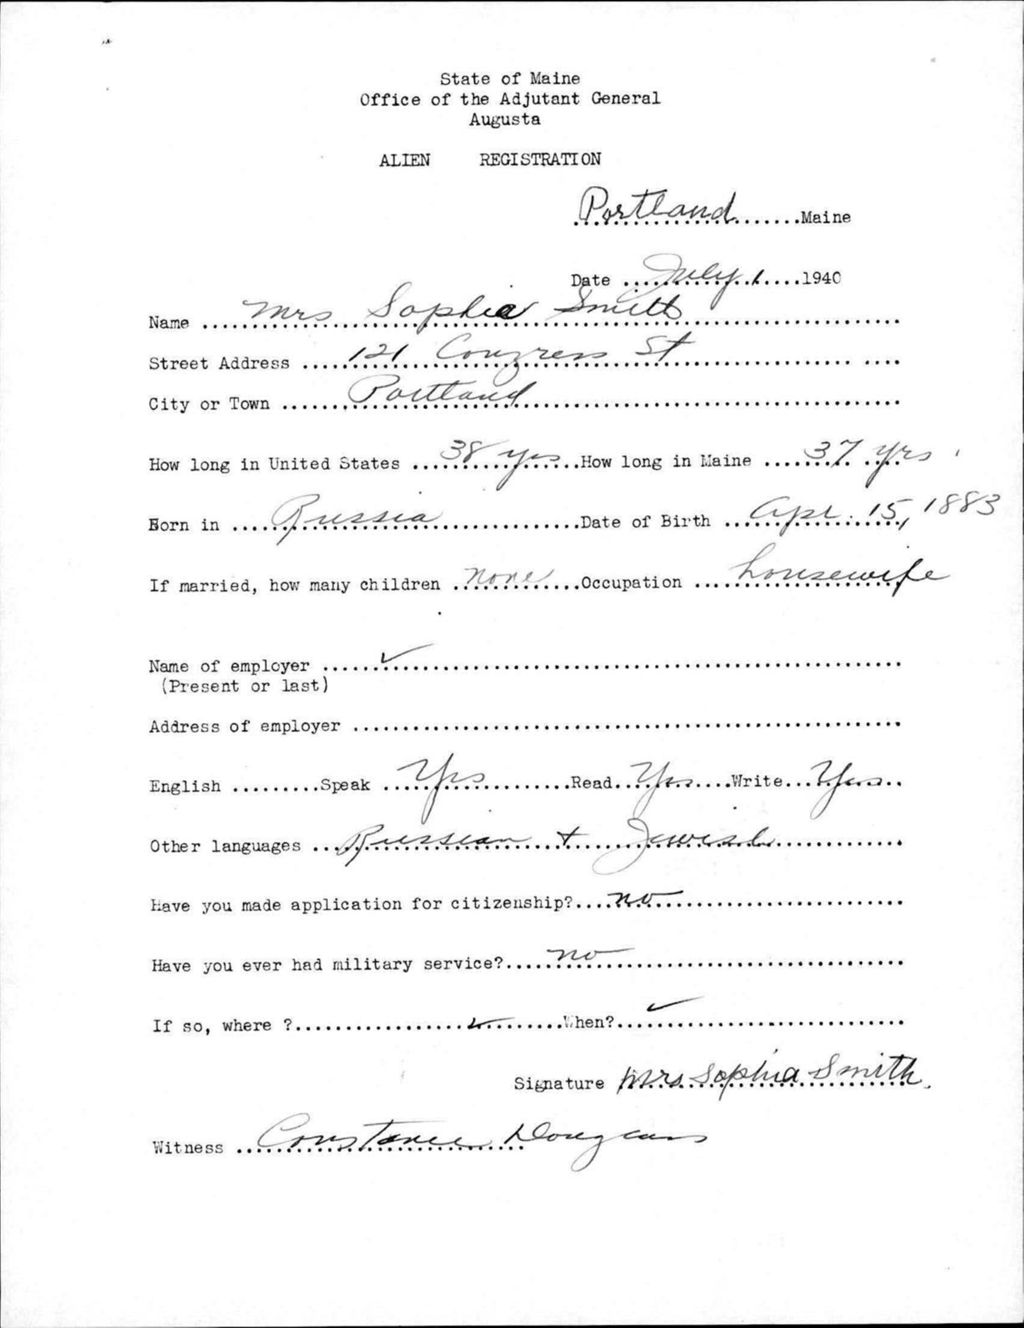 State of Maine
Office of the Adjutant General
Augusta
ALIEN REGISTRATION
Portland.......Maine
Date ....July 1....1940
Name ....Mrs Sophia Smith....
Street Address .....121 Congress St.... ....
City or Town .......Portland....
How long in United States ....38 yrs...How long in Maine ....37 yrs.
Born in ....Russia....Date of Birth ...Apr. 15, 1883
If married, how many children .none....Occupation ....housewife
Name of employer ......✓....
(Present or last)
Address of employer ....
English .........Speak ....Yes..........Read..Yes.....Write...Yes..
Other languages ...Russian + Jewish....
Have you made application for citizenship?....no....
Have you ever had military service?.....no....
If so, where ?.................✓........When?...✓....
Signature Mrs. Sophia Smith.
Witness ..Constance Douglass